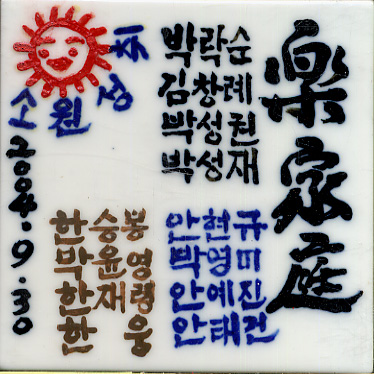 소원성취
2004.9.30
樂家庭
박락순
김창례
박성권
박성재
한승봉
박윤영
한재령
한웅
안현규
박영미
안예진
안태건